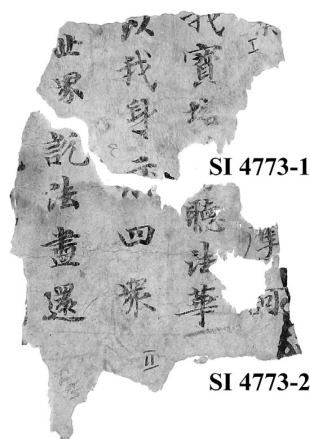 我寶塔
以我身示
世界
SI 4773-1
聽法華
四眾
說法盡還
SI 4773-2